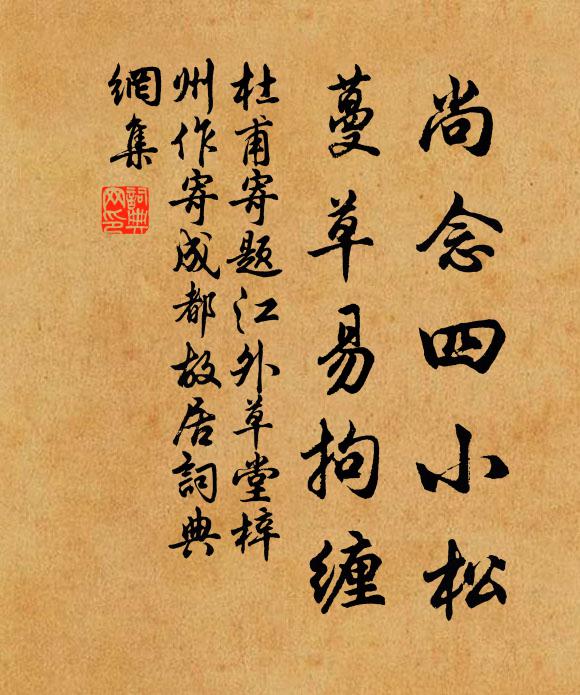 尚念四小松
蔓草易拘缠
杜甫寄题江外草堂梓
州作寄成都故居詞典
網集
詞典
网印